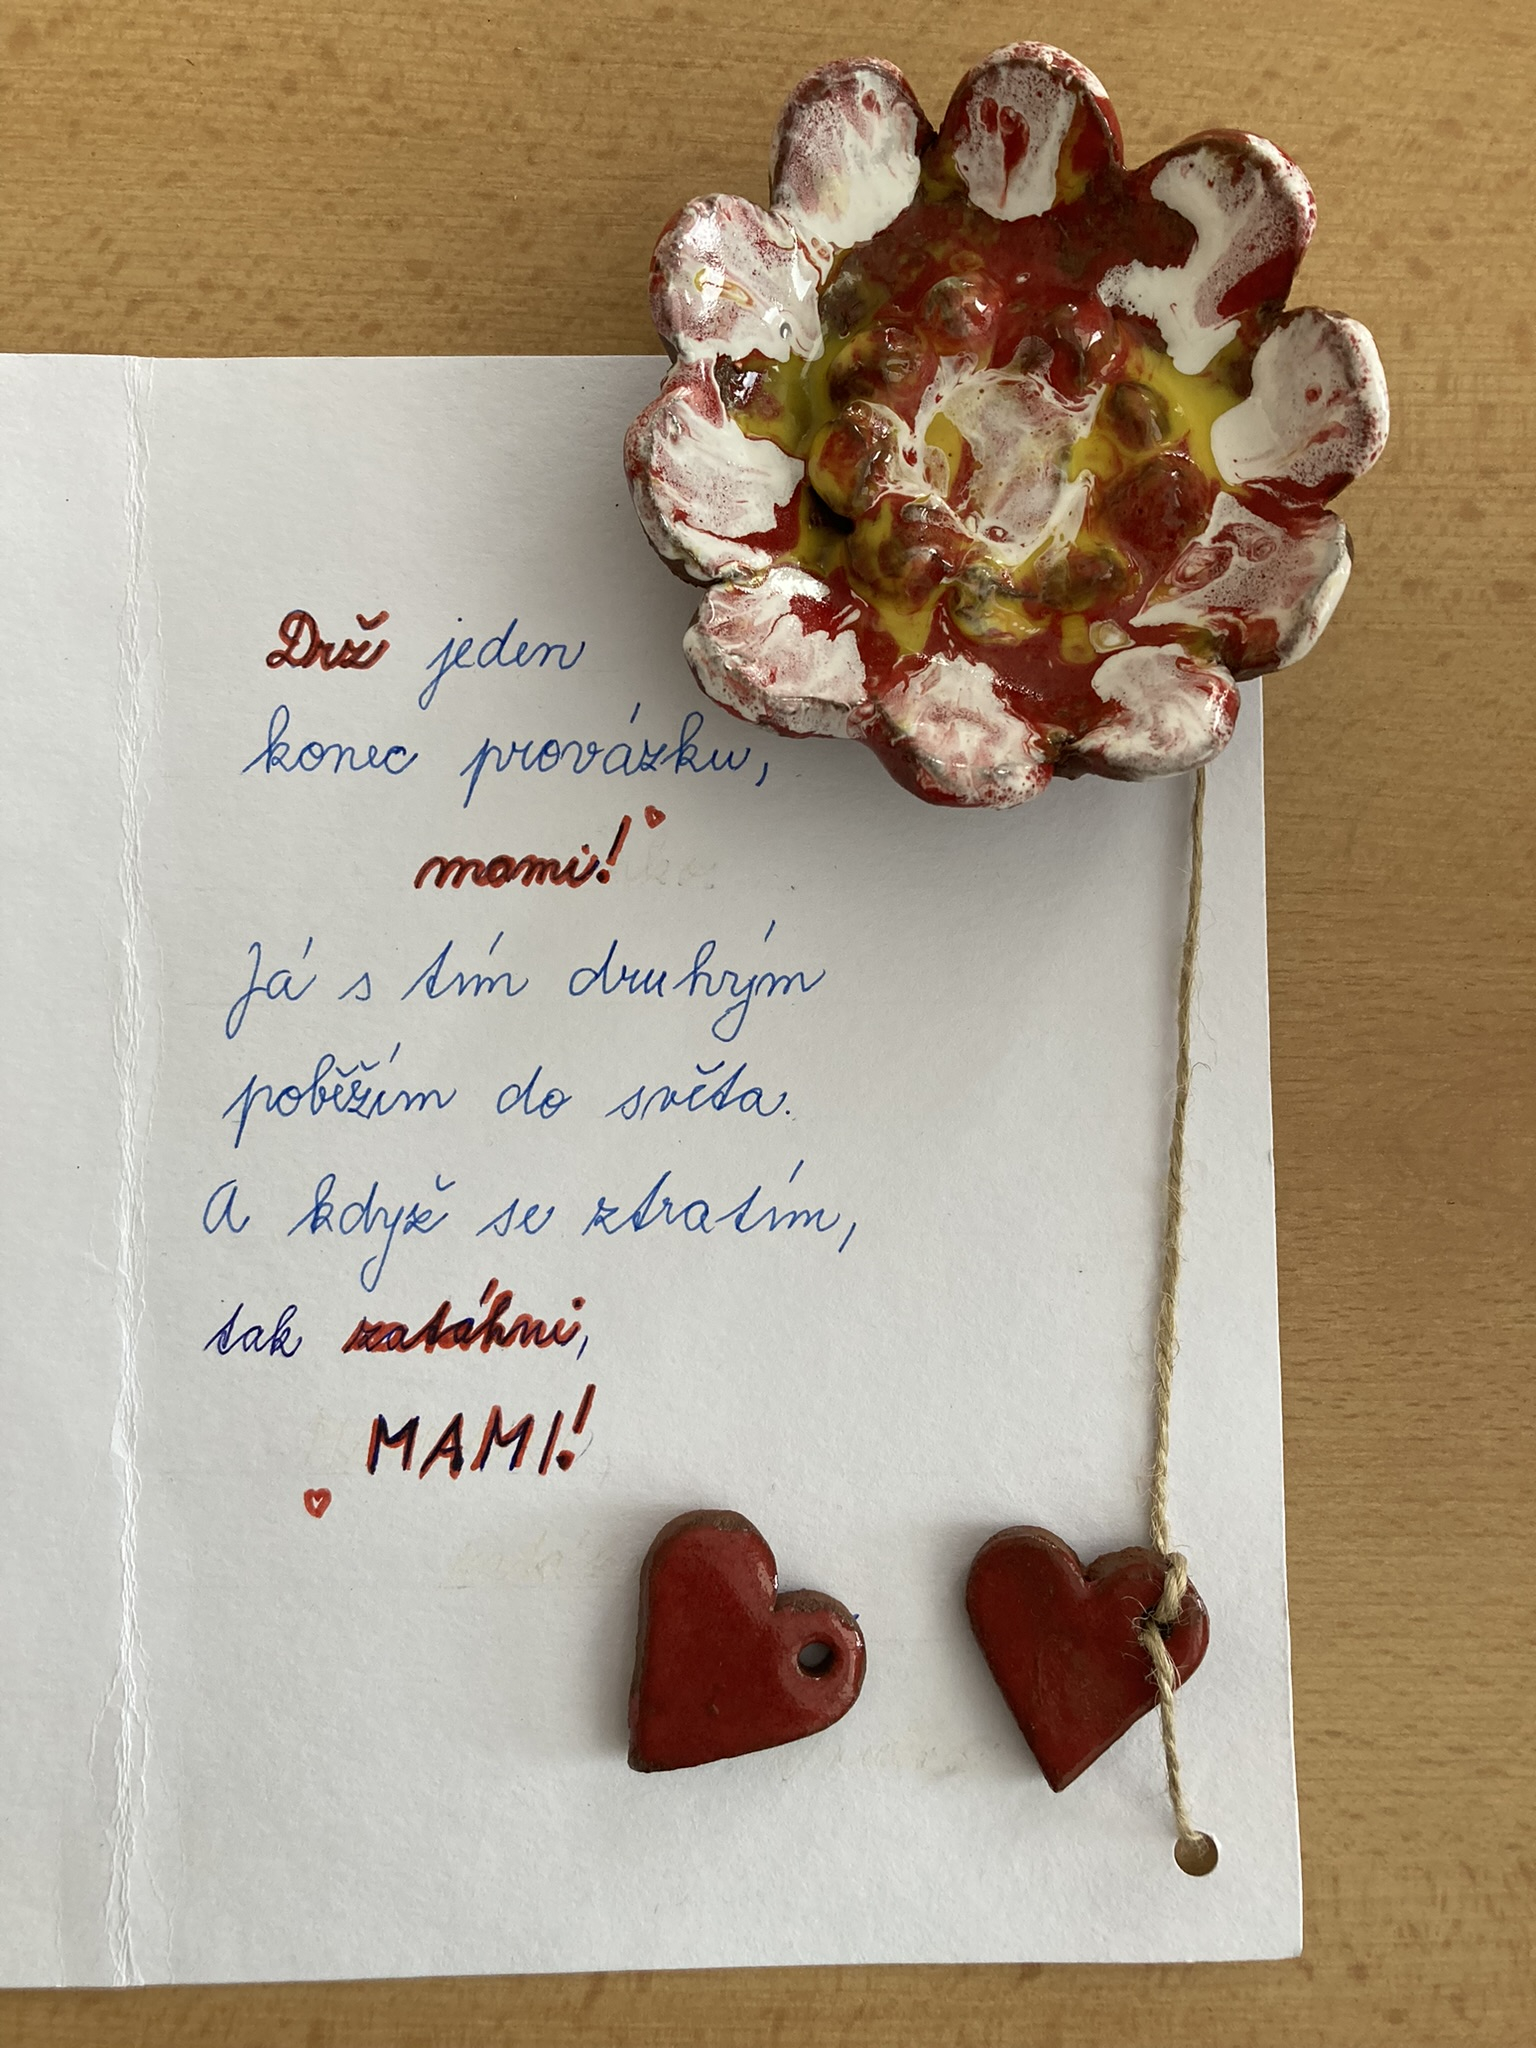 Drž jeden
konec provázku,
mami!
Já s tím druhým
poběžím do světa.
A když se ztratím,
tak zatáhni,
MAMI!